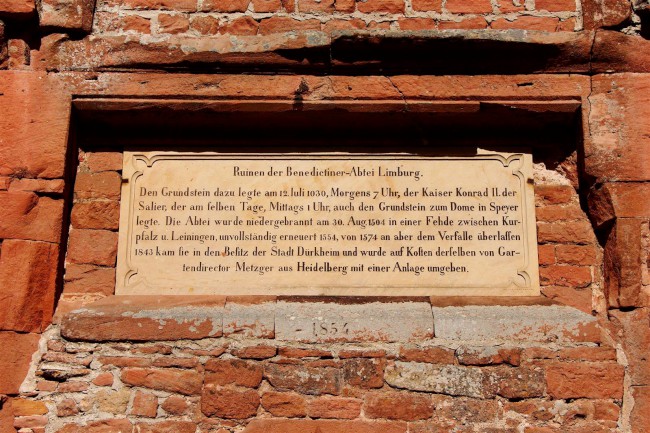 Ruinen der Benedictiner-Abtei Limburg.
Den Grundstein dazu legte am 12. Iuli 1030, Morgens 7 Uhr, der Kaiser Konrad II. der
Salier, der am selben Tage, Mittags 1 Uhr, auch den Grundstein zum Dome in Speyer
legte. Die Abtei wurde niedergebrannt am 30. Aug. 1504 in einer Fehde zwischen Kur-
pfalz u. Leiningen, unvollständig erneuert 1554, von 1574 an aber dem Verfalle überlassen
1843 kam sie in den Besitz der Stadt Dürkheim und wurde auf Kosten derselben von Gar-
tendirector Metzger aus Heidelberg mit einer Anlage umgeben.
1854